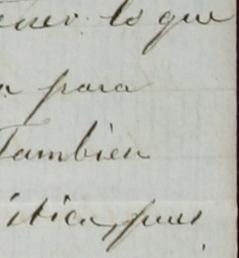 ener lo que
a para
Tambien
itica, pues